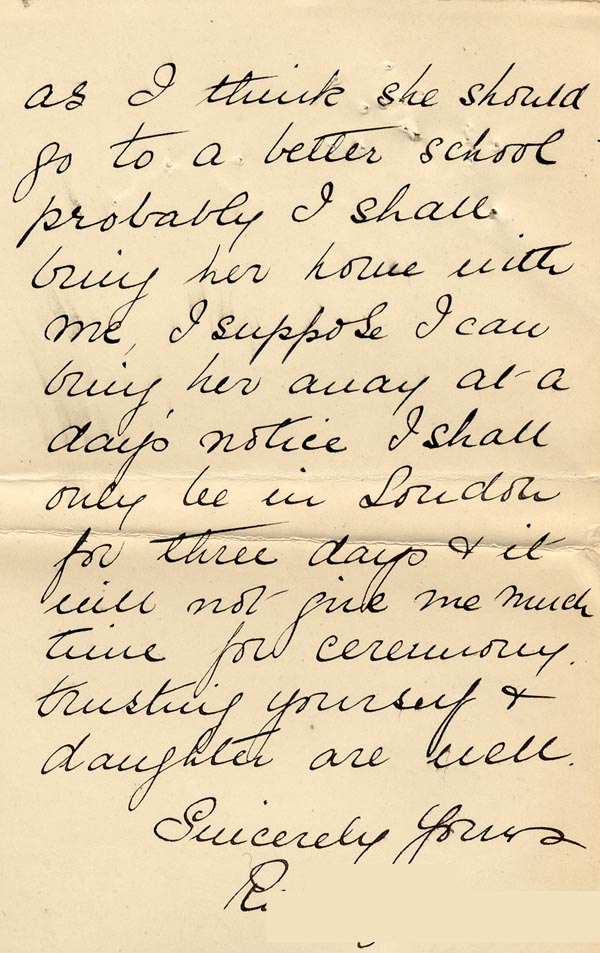 as I think she should
go to a better school
probably I shall
bring her home with
me, I suppose I can
bring her away at a
day's notice I shall
only be in London
for three days & it
will not give me much
time for ceremony.
trusting yourself &
daughter are well.
Sincerely Yours
R.